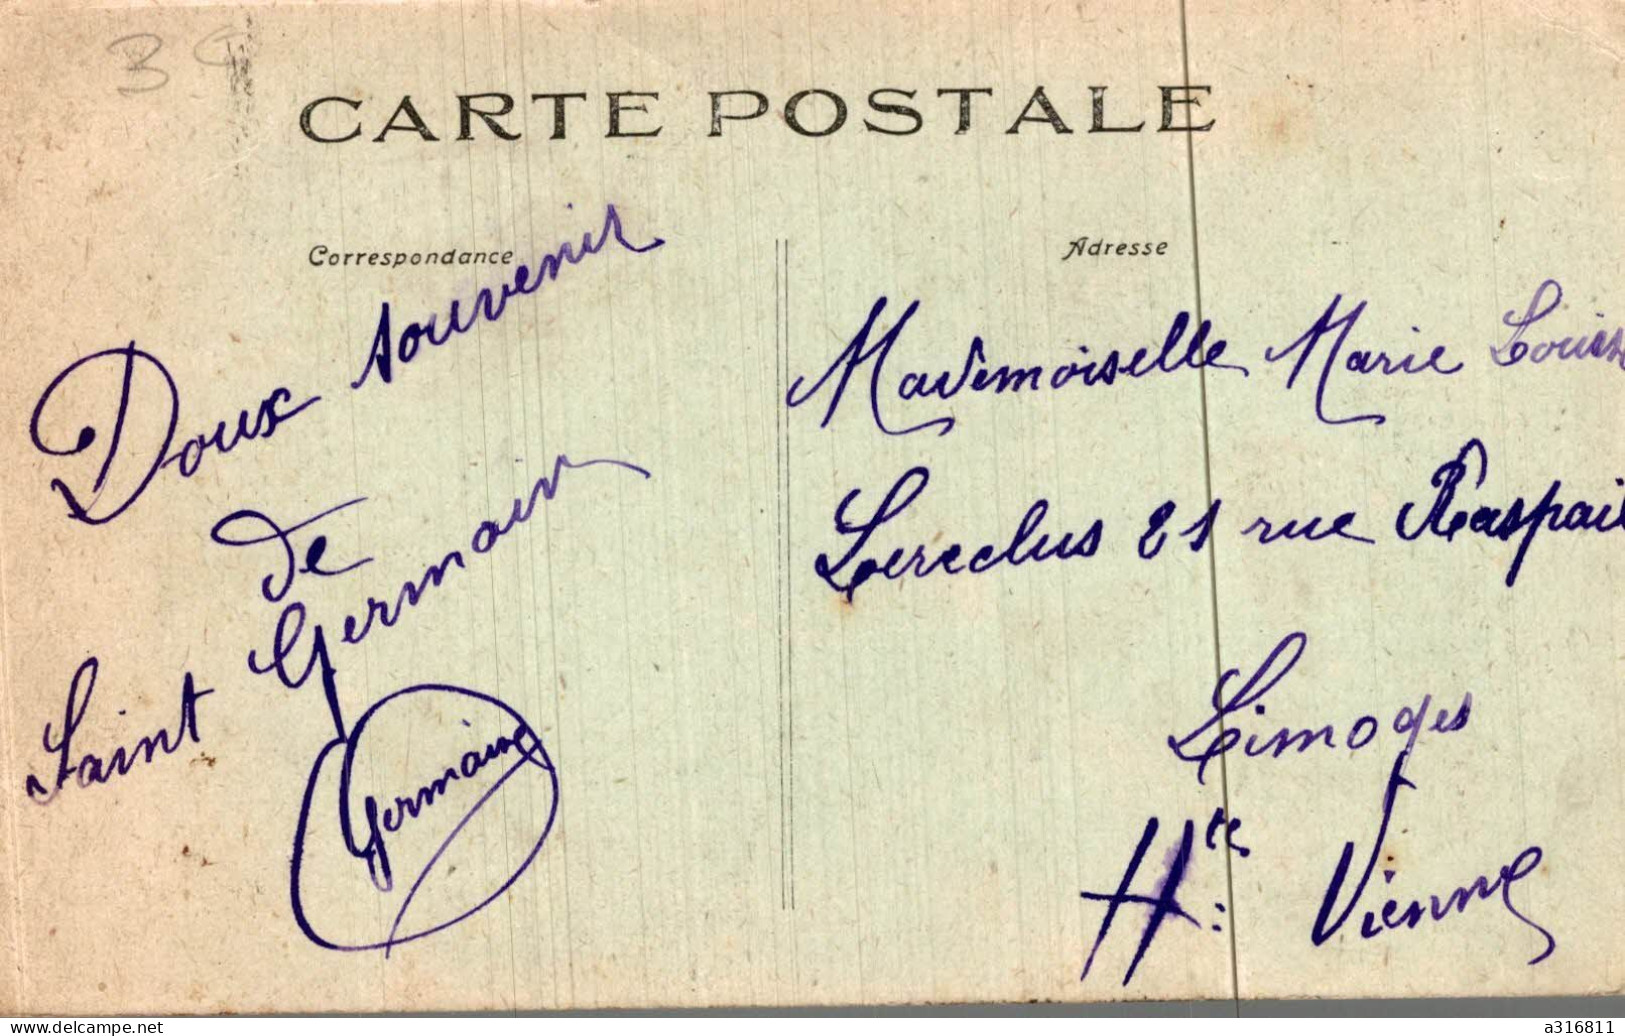 CARTE POSTALE
Correspondance
Doux souvenir
de
Saint Germain
Germaine
Adresse
Mademoiselle Marie Louise
Lerclus 21 rue Raspail
Limoges
Hte Vienne
www.delcampe.net
a316811